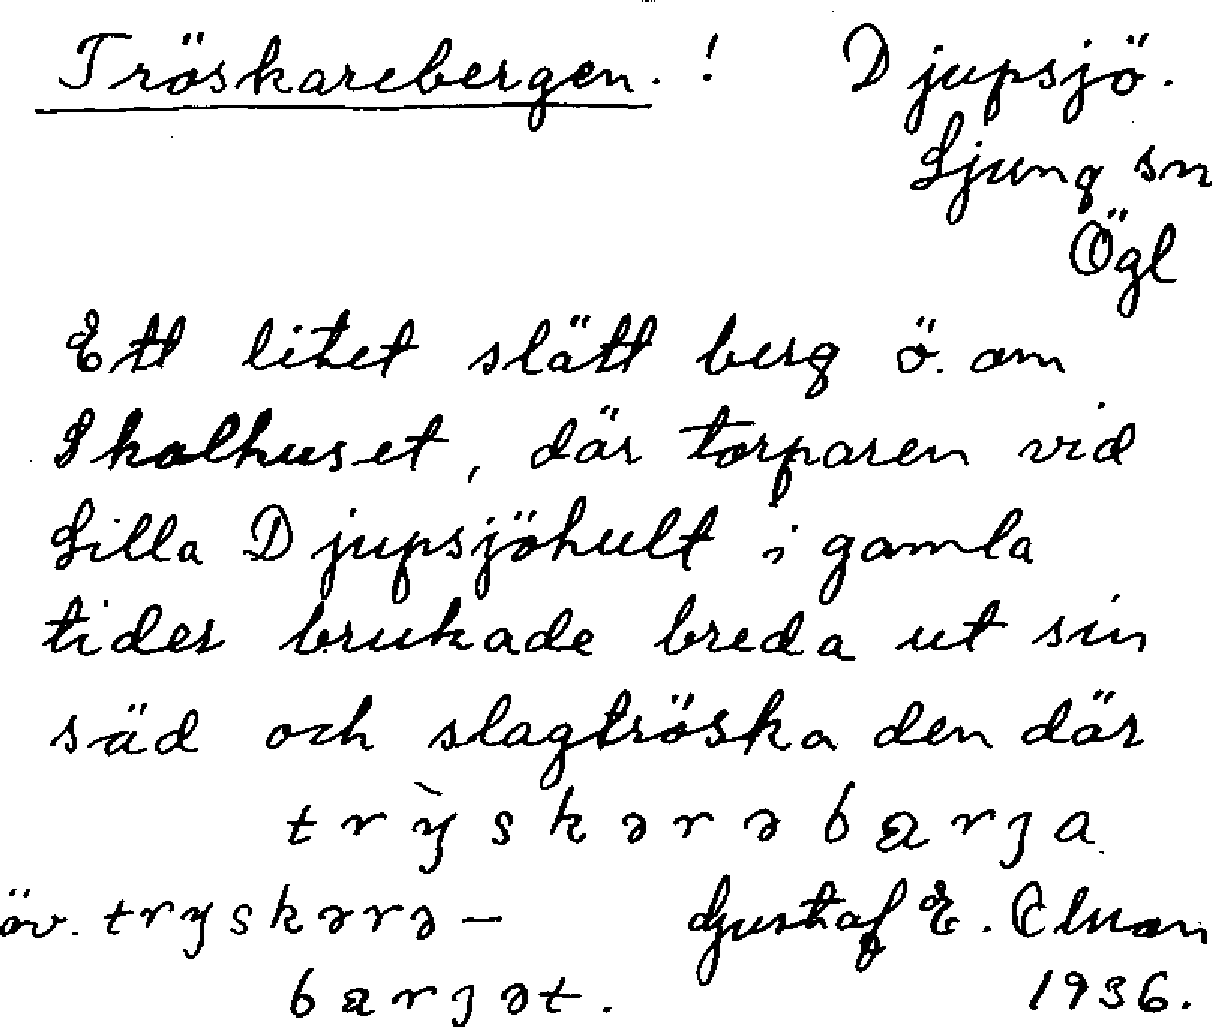 Tröskarebergen. ! Djupsjö.
Ljung sn
Ögl
Ett litet slätt berg ö. om
Skolhuset, där torparen vid
Lilla Djupsjöhult i gamla
tider brukade breda ut sin
säd och slagtröska den där
trỳskərəbarʒa
öv. tryskərə–
barʒət.
Gustaf E. 
1936.